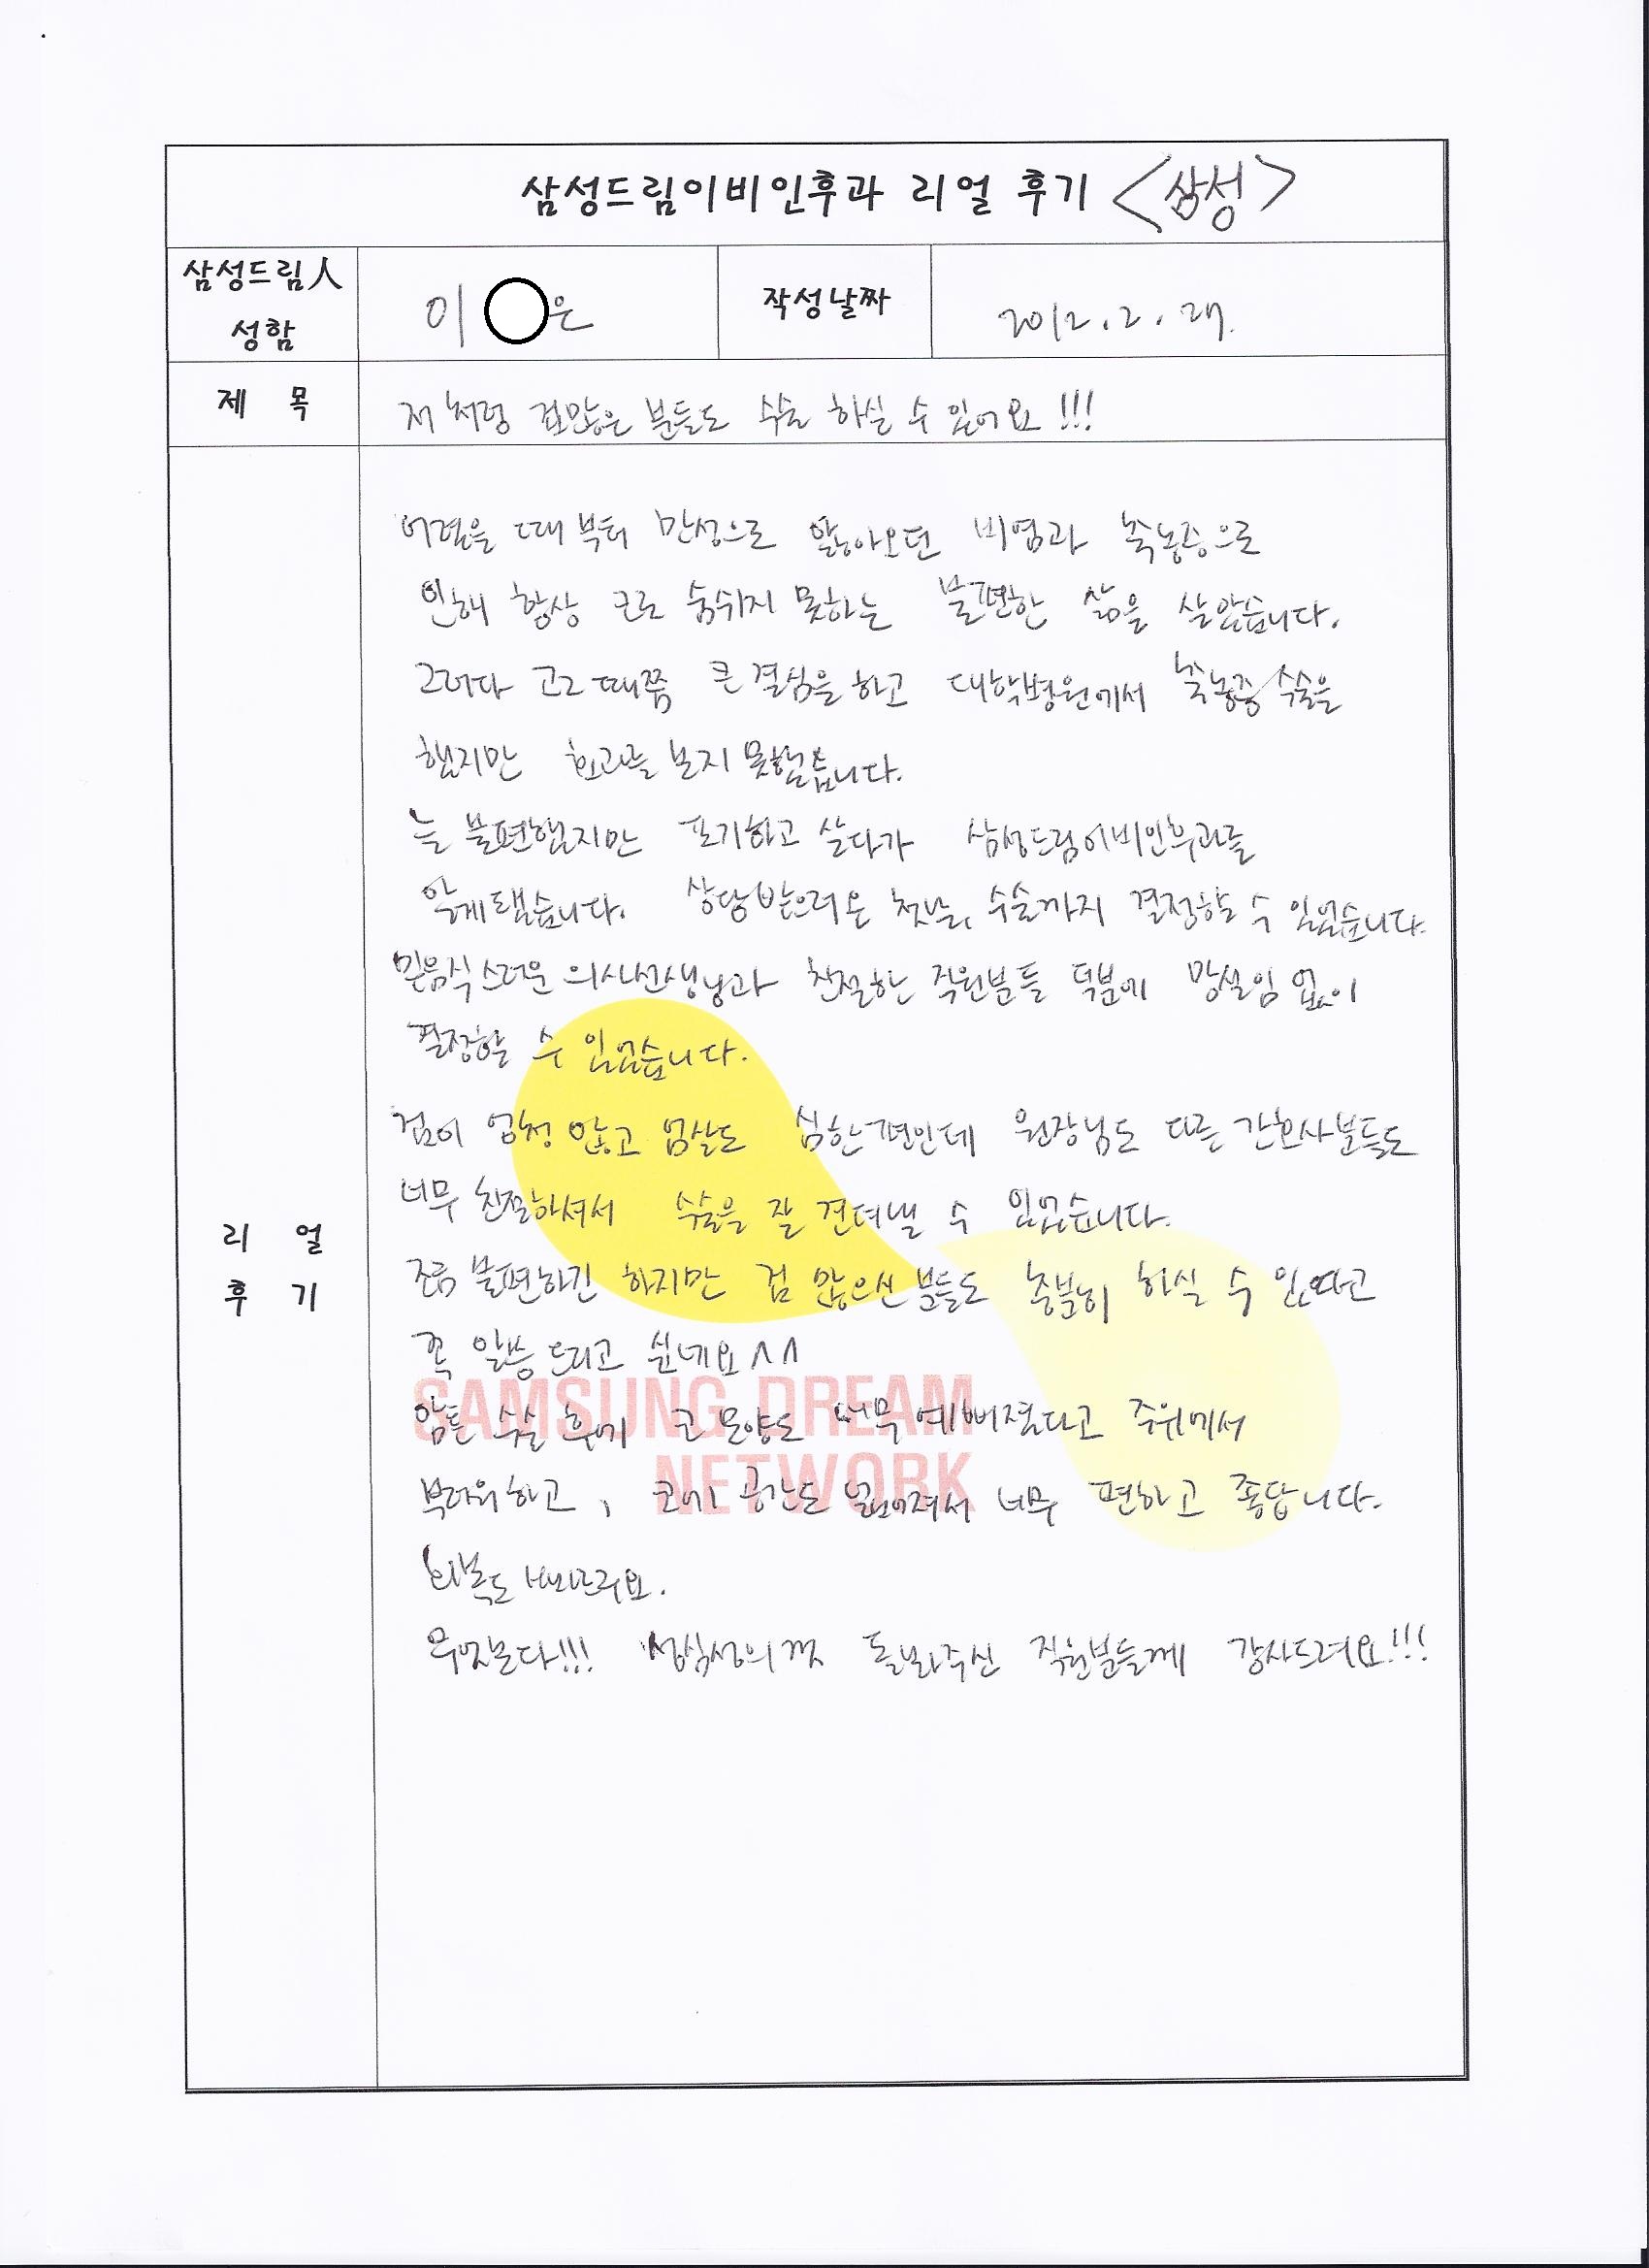 삼성드림이비인후과 리얼 후기 <삼성>
삼성드림人
성함
이 은
작성날짜
2012. 2. 27.
제 목
저 처럼 겁많은 분들도 수술 하실 수 있어요!!!
어렸을 때 부터 만성으로 앓아오던 비염과 축농증으로
인해 항상 코로 숨쉬지 못하는 불편한 삶을 살았습니다.
그러다 고2 때쯤 큰 결심을 하고 대학병원에서 축농증 수술을
했지만 효과를 보지 못했습니다.
늘 불편했지만 포기하고 살다가 삼성드림이비인후과를
알게됐습니다. 상담받으러 온 첫날, 수술까지 결정할 수 있었습니다.
믿음직 스러운 의사선생님과 친절한 직원분들 덕분에 망설임 없이
결정할 수 있었습니다.
겁이 엄청 많고 엄살도 심한편인데 원장님도 다른 간호사분들도
너무 친절하셔서 수술을 잘 견뎌낼 수 있었습니다.
조금 불편하긴 하지만 겁 많으신 분들도 충분히 하실 수 있다고
꼭 말씀 드리고 싶네요^^
암튼 수술 후에 코 모양도 너무 예뻐졌다고 주위에서
부러워하고, 코에 공간도 넓어져서 너무 편하고 좋답니다.
회복도 빠르구요.
무엇보다!!! 성심성의껏 돌봐주신 직원분들께 감사드려요!!!
리 얼
후 기
SAMSUNG DREAM
NETWORK